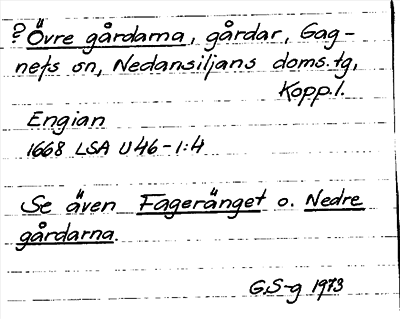 ? Övre gårdarna, gårdar, Gag-
nefs sn, Nedansiljans doms.tg,
Kopp.l.
Engian
1668 LSA U46-1:4
Se även Fageränget o. Nedre
gårdarna.
G.S-g 1973